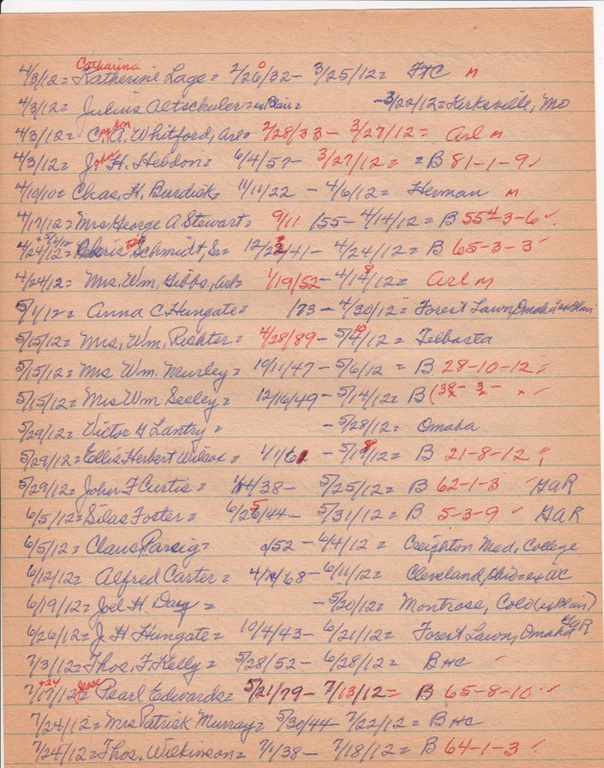 Catharina
4/3/12= Katherine Lage= 2/26/32- 3/25/12= FHC M
4/3/12= Julius Altschuler= ex Blair= -3/22/12= Kirksville, Mo
4/3/12= C.A. Whitford, Arl= 2/28/33- 3/27/12= Arl M
4/3/12= John H. Hebdon= 6/4/57- 3/27/12= =B 81-1-9
4/10/10= Chas. H. Burdick= 11/11/22 - 4/6/12= Herman M
4/17/12= Mrs. George A Stewart= 9/11/55- 4/14/12= B 55-3-6
4/24/12= Schmidt, Sr= 12/22/41- 4/24/12= B 65-3-3
4/24/12= Mrs. Wm. Gibbs, Arl= 1/19/52- 4/18/12= Arl M
5/1/12= Anna C. Hungate= /73- 4/30/12= Forest Lawn, Omaha=ex Blair
5/15/12= Mrs. Wm. Richter= 4/28/89- 5/10/12= Telbasta
5/15/12= Mrs Wm. Murley= 10/11/47- 5/6/12= B 28-10-12
5/15/12= Mrs Wm Seeley= 12/16/49- 5/14/12= B (38- 3-
5/29/12= Victor G Lantry= -5/28/12= Omaha
5/29/12= Ellis Herbert Wilcox= B 21-8-12
5/29/12= John F Curtis= 38- 5/25/12= B 62-1-3 GAR
6/5/12= Silas Foster= 6/25/44- 5/31/12= B 5-3-9 GAR
6/5/12= Claus /52- 6/4/12= Creighton Med. College
6/12/12= Alfred Carter= 68- 6/11/12= Cleveland, Ohio=ex AC
6/19/12= Joel H. Day= -5/20/12= Montrose, Colo(ex Blair)
6/26/12= J. H Hungate= 10/4/43- 6/21/12= Forest Lawn, Omaha GAR
7/3/12= Thos. F. Kelly= 5/28/52- 6/28/12= B HC
+24
7/17/12= Jesse Pearl Edwards= 5/21/79- 7/13/12= B 65-8-10
7/24/12= Mrs Patrick Murray= 5/30/44 7/22/12= B HC
7/24/12= Thos. Wilkinson= 7/1/38- 7/18/12= B 64-1-3